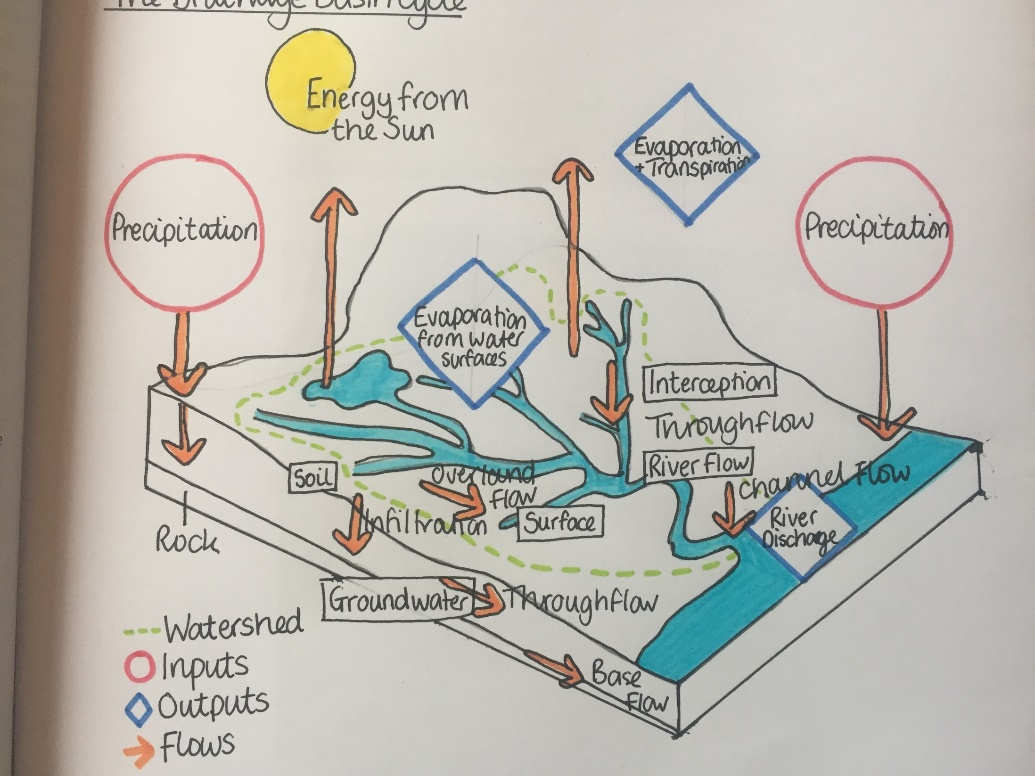 The Drainage Basin Cycle
Energy from
the Sun
Evaporation
+ Transpiration
Precipitation
Precipitation
Evaporation
from water
surfaces
Interception
Throughflow
River Flow
Soil
Overland
Flow
Channel Flow
Infiltration
Surface
River
Discharge
Rock
Groundwater
Throughflow
Base
Flow
Watershed
Inputs
Outputs
Flows